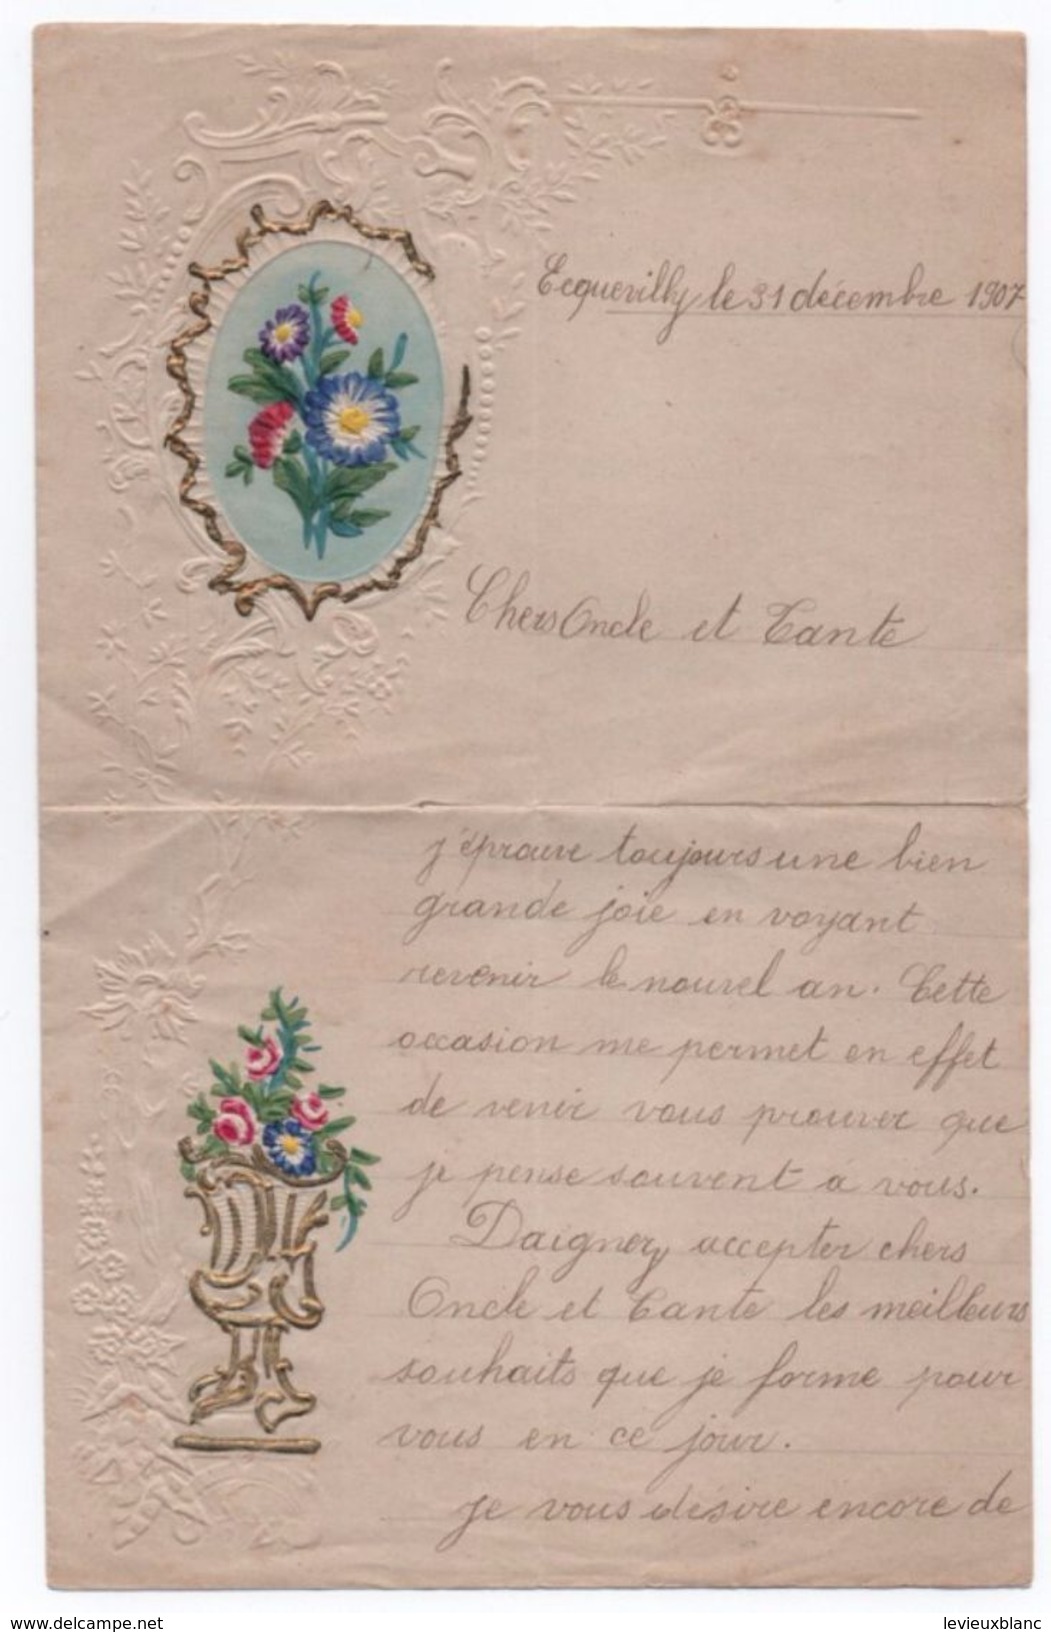 Ecquevilly le 31 décembre 1907
Chers Oncle et Tante
j'éprouve toujours une bien
grande joie en voyant
revenir le nouvel an. Cette
occasion me permet en effet
de venir vous prouver que
je pense souvent à vous.
Daignez accepter chers
Oncle et Tante les meilleurs
souhaits que je forme pour
vous en ce jour.
je vous désire encore de
www.delcampe.net
levieuxblanc